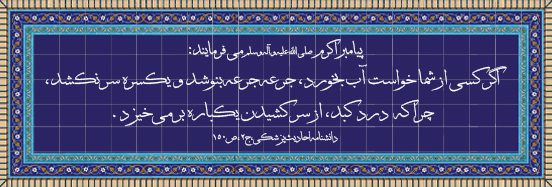 پیامبر اکرم صلی الله علیه و آله و سلم می فرمایند:
اگر کسی از شما خواست آب بخورد، جرعه جرعه بنوشد و یکسره سر نکشد،
چرا که درد کبد، از سر کشیدن یکباره بر می خیزد.
دانشنامه احادیث پزشکی، ج۲، ص۱۵۰